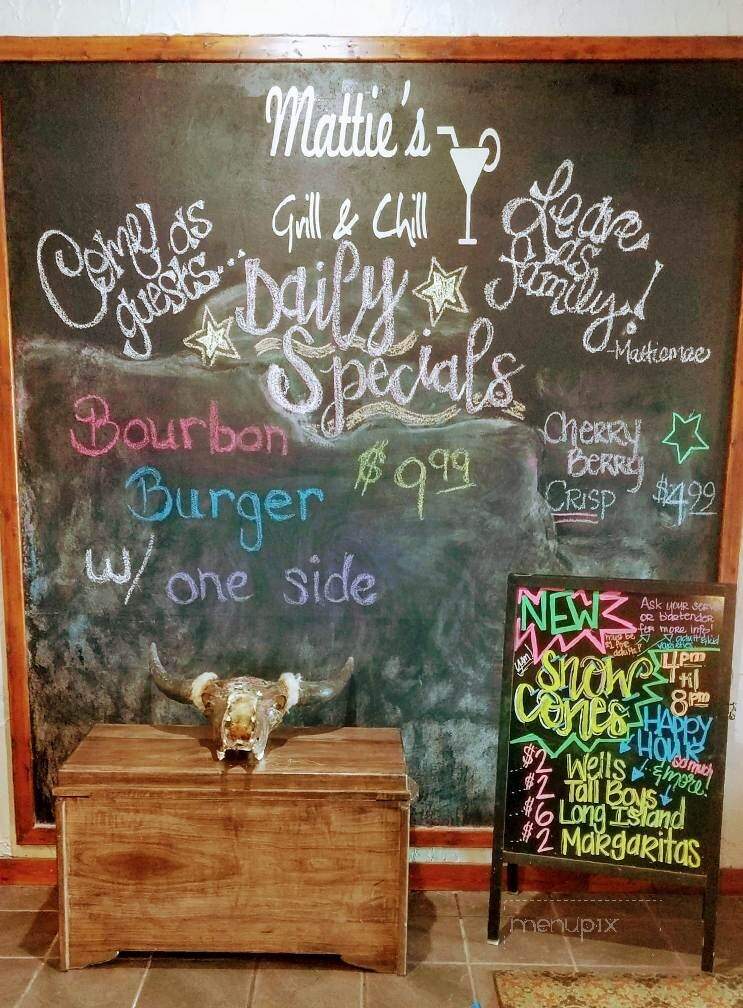 Mattie's
Grill & Chill
Come as
guests...
Leave
as
family!
-Mattiemae
Daily
Specials
Bourbon
Burger
$9.99
w/ one side
Cherry
Berry
Crisp
$4.99
NEW
Ask your
or bartender
for more info!
must be
Snow
Cones
4pm
'til
8pm
Happy
Hour
so much
& more!
$2 Wells
$2 Tall Boys
$6 Long Island
$2 Margaritas
menupix